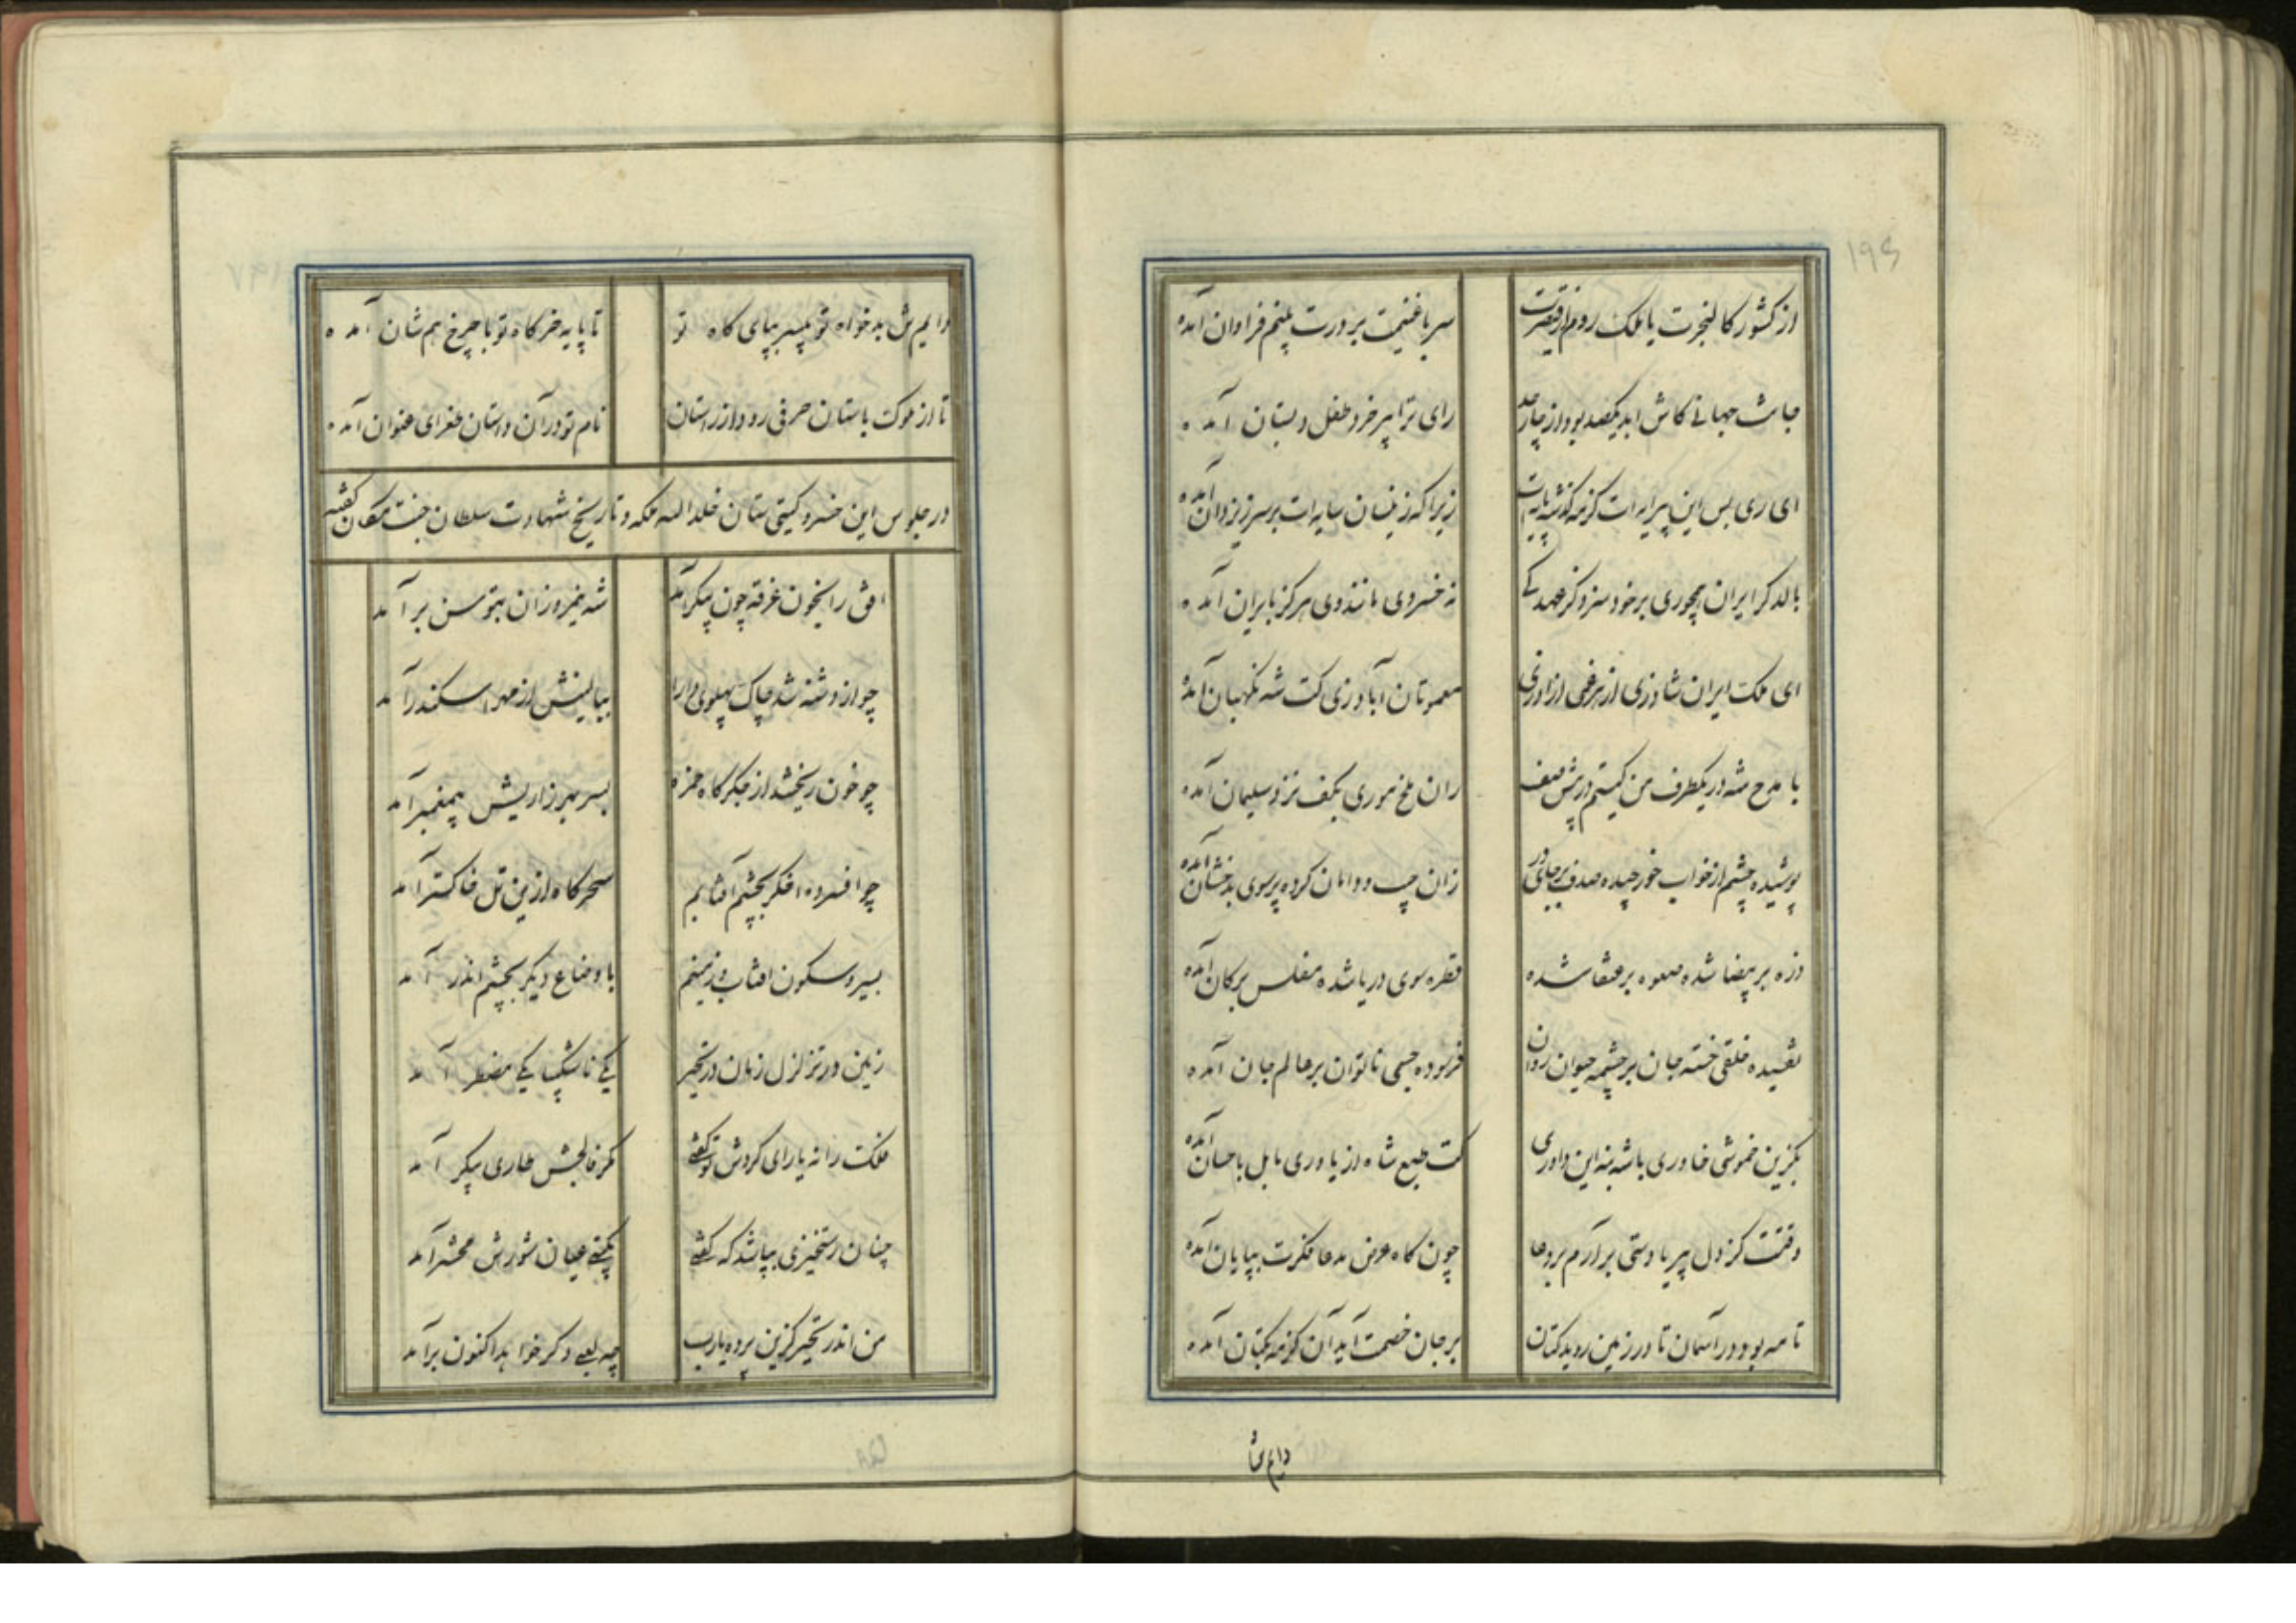 ۱۹۶
از کشور کالنجرت یا ملک روم از قیصرت
سر با غنیمت بر درت بینم فراوان آمده
جاهت جهانی کاش ابد یکصد بود از چار حد
رای ترا پیر خرد طفل دبستان آمده
ای ری بس این پیرایه‌ات کز مه گذشته پایه‌ات
زیرا که زینسان سایه‌ات بر سر ز یزدان آمده
بالد گر ایران همچو ری بر خود سزد کز عهد کی
نه خسروی مانند وی هرگز بایران آمده
ای ملک ایران شاد زی از هر غمی آزاد زی
معمور تان آباد زی کت شه نگهبان آمده
با مدح شه در یکطرف من کیستم در پیش صف
ران ملخ موری بکف نزد سلیمان آمده
پوشیده چشم از خواب خور چیده صدف بر جای در
زان جیب و دامان کرده پر سوی بدخشان آمده
ذره بر بیضا شده صعوه بر عنقا شده
قطره سوی دریا شده مفلس بر کان آمده
تفسیده خلقی خسته جان بر چشمه حیوان روان
فرسوده جسمی ناتوان بر عالم جان آمده
بگزین خموشی خاوری با شه بنه این داوری
کت طبع شاه از یاوری مایل باحسان آمده
وقتست کز دل بی‌ریا دستی برآرم بر دعا
چون گاه عرض مدعا فکرت بپایان آمده
تا مه بود در آسمان تا در زمین روید کتان
بر جان خصمت آید آن کز مه بکتان آمده
دایم ش
دایم ش بدخواه تو بی‌سر بپای گاه تو
تا پایه خرگاه تو با چرخ هم شان آمده
تا از ملوک باستان حرفی رود از راستان
نام تو در آن داستان طغرای عنوان آمده
در جلوس این خسرو گیتی ستان خلد الله ملکه و تاریخ شهادت سلطان جنت مکان گفته
افق را بخون غرقه چون پیکر آمد
شه نیمروزان بتوسن برآمد
چو از دشنه شد چاک پهلوی دارا
ببالینش از مهر اسکندر آمد
چو خون ریختش از جگرگاه حمزه
بسر بهر زاریش پیغمبر آمد
چو افسرده اخگر بچشم آفتابم
سحرگاه ازین تل خاکستر آمد
بسیر و سکون آفتاب و زمینم
باوضاع دیگر بچشم اندر آمد
زمین در تزلزل زمان در تحیر
یکی ناشکیبا یکی مضطر آمد
فلک را نه یارای گردش تو گفتی
مگر فالجش طاری پیکر آمد
چنان رستخیزی بپا شد که گفتی
بگیتی عیان شورش محشر آمد
من اندر تحیر کزین پرده یارب
چه لعبی دگر خواهد اکنون برآمد